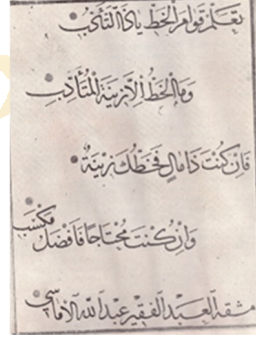 تعلم قوام الخط يا ذا التأدب
وما الخط إلا زينة المتأدب
فإن كنت ذا مال فخطك زينة
وإن كنت محتاجا فأفضل مكسب
مشقه العبد الفقير عبد الله الأماسي